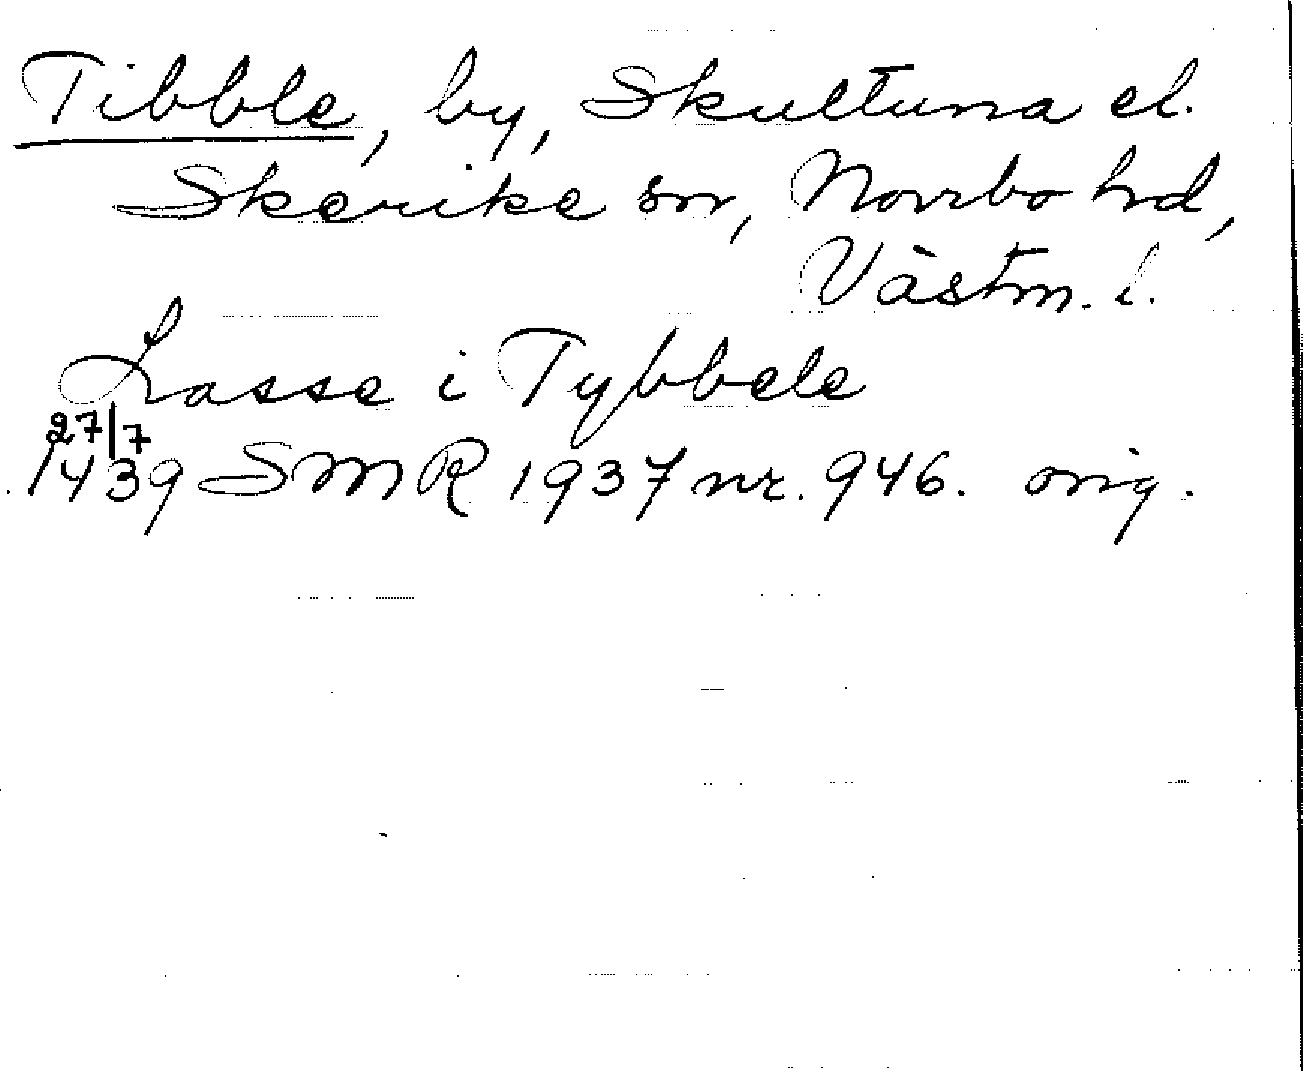 Tibble, by, Skultuna el.
Skerike sn, Norrbo hd,
Västm. l.
Lasse i Tybbele
27/7
1439 SMR 1937 nr. 946. orig.